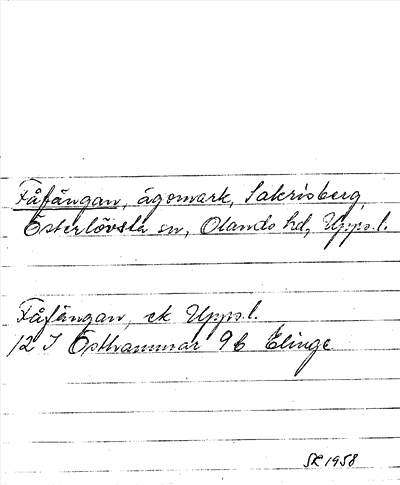 Fåfängan, ägomark, Sakrisberg,
Österlövsta sn, Olands hd, Upps.l.
Fåfängan, ek Upps.l.
12 I Östhammar 9 b Elinge
SR 1958